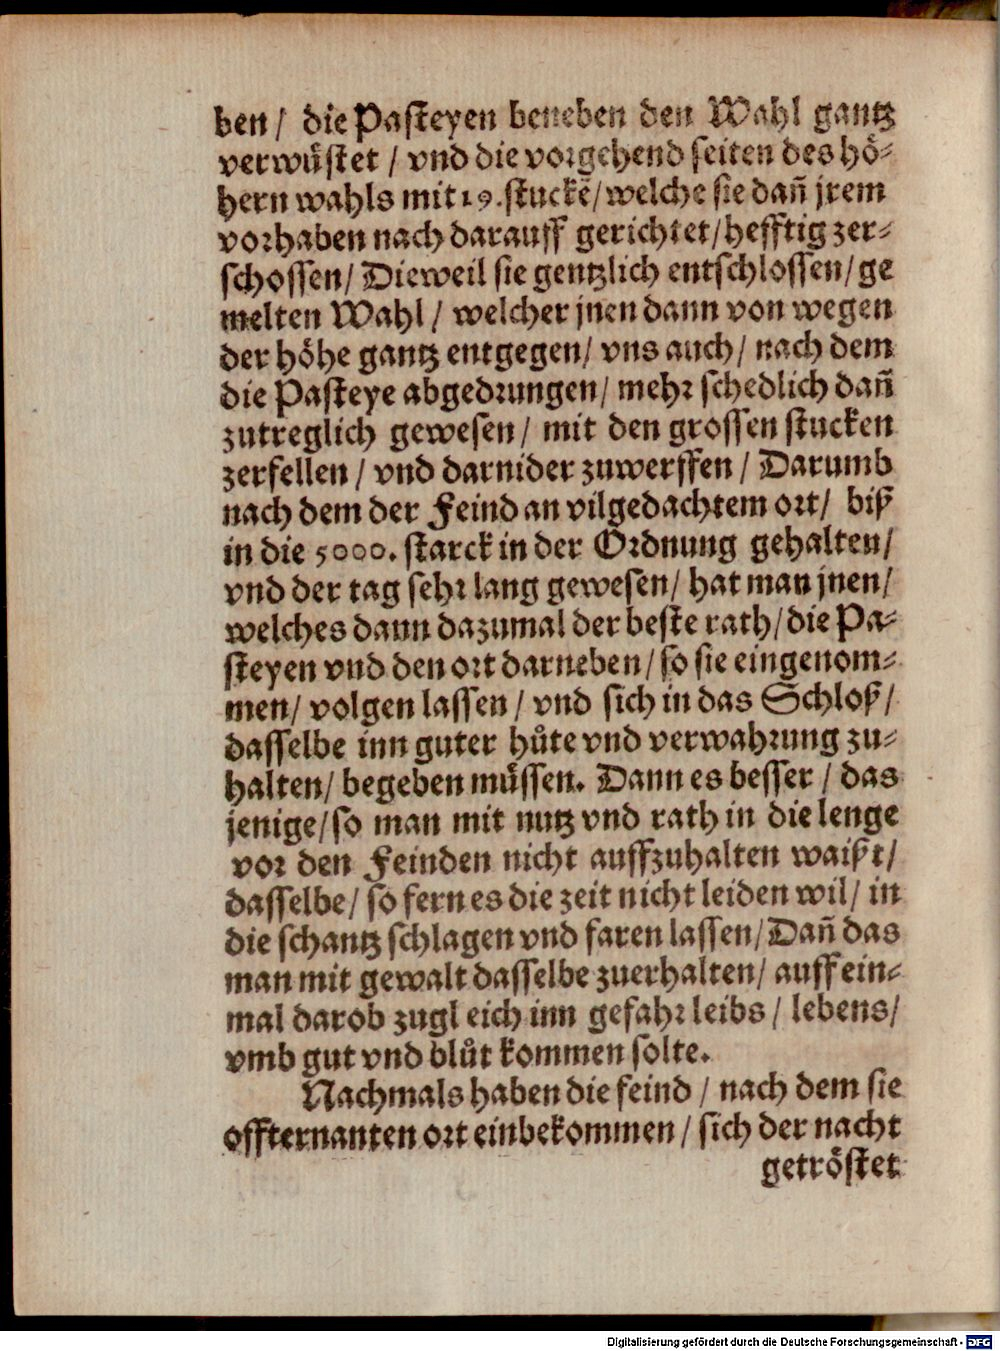 ben / die Pasteyen beneben den Wahl gantz
verwuͤstet / vnd die vorgehend seiten des hoͤ-
hern wahls mit 19. stuckẽ / welche sie dañ jrem
vorhaben nach darauff gerichtet / hefftig zer-
schossen / Dieweil sie gentzlich entschlossen / ge
melten Wahl / welcher jnen dann von wegen
der hoͤhe gantz entgegen / vns auch / nach dem
die Pasteye abgedrungen / mehr schedlich dañ
zutreglich gewesen / mit den grossen stucken
zerfellen / vnd darnider zuwerffen / Darumb
nach dem der Feind an vilgedachtem ort / biß
in die 5000. starck in der Ordnung gehalten /
vnd der tag sehr lang gewesen / hat man jnen /
welches dann dazumal der beste rath / die Pa-
steyen vnd den ort darneben / so sie eingenom-
men / volgen lassen / vnd sich in das Schloß /
dasselbe inn guter huͦte vnd verwahrung zu-
halten / begeben muͤssen. Dann es besser / das
jenige / so man mit nutz vnd rath in die lenge
vor den Feinden nicht auffzuhalten waißt /
dasselbe / so fern es die zeit nicht leiden wil / in
die schantz schlagen vnd faren lassen / Dañ das
man mit gewalt dasselbe zuerhalten / auff ein-
mal darob zugl eich inn gefahr leibs / lebens /
vmb gut vnd bluͦt kommen solte.
Nachmals haben die feind / nach dem sie
offternanten ort einbekommen / sich der nacht
getroͤstet
Digitalisierung gefördert durch die Deutsche Forschungsgemeinschaft - DFG